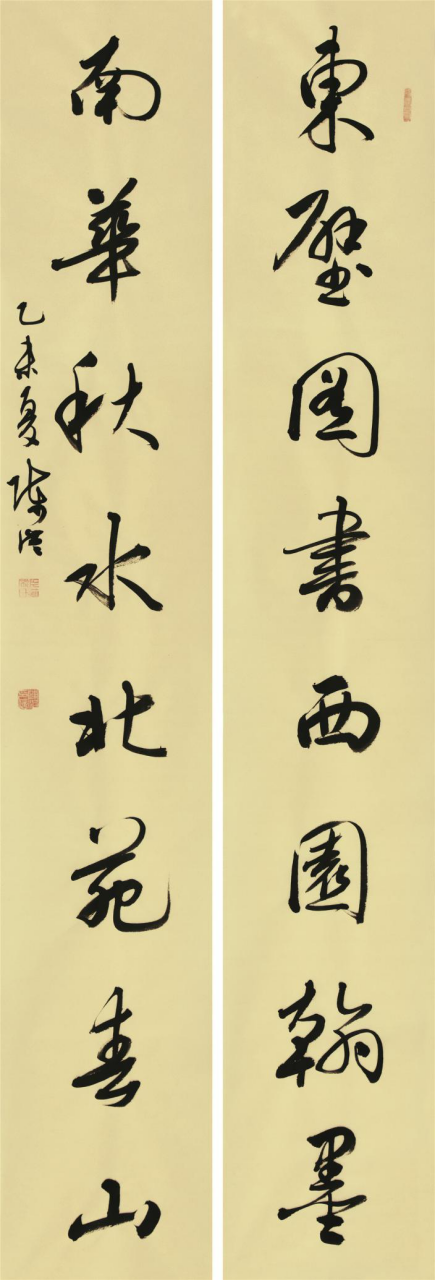 東壁圖書西園翰墨
南華秋水北苑春山
乙未夏